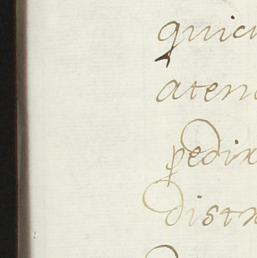 quici
aten
pedir
distr